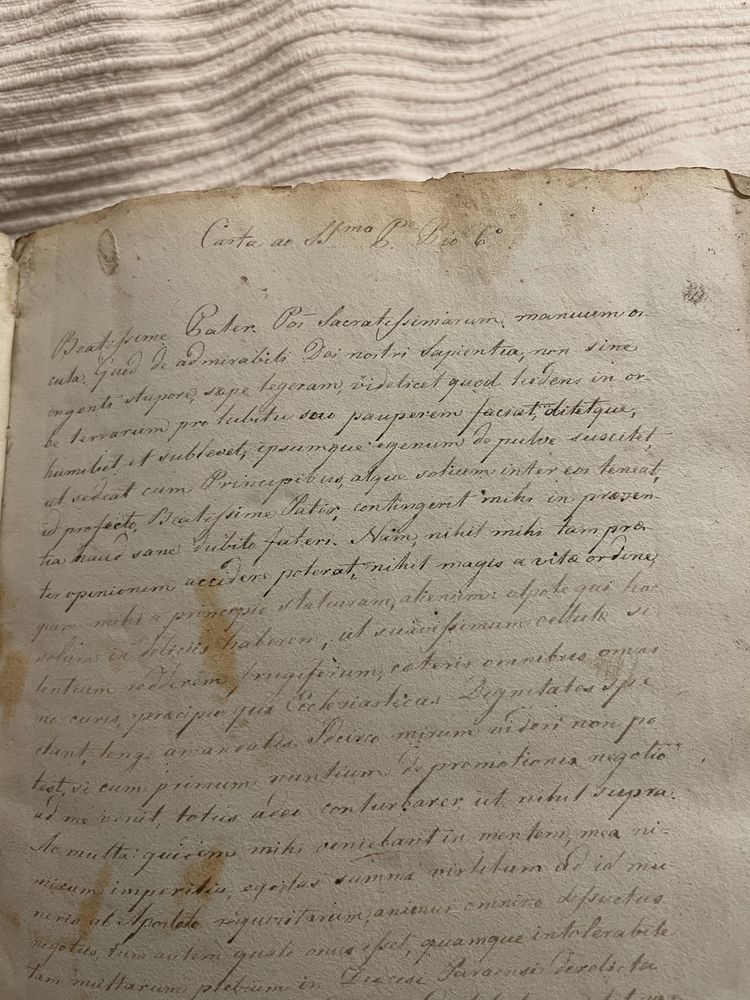 Carta ao SSmo Pe Pio 6º
Beatissime Pater. Pos Sacratissimarum manuum os-
cula. Quid de admirabili Dei nostri Sapientia, non sine
ingenti stupore, sæpe legeram, videlicet quod ludens in or-
be terrarum pro lubitu suo pauperem faciat, ditetque,
humiliet et sublevet, ipsumque egenum de pulve suscitet,
ut sedeat cum Principibus, atque solium inter eos teneat,
id profecto, Beatissime Pater, contingerit mihi in præsen-
tia haud sane dubito fateri. Nam, nihil mihi tam præ-
ter opinionem accidere poterat, nihil magis a vitæ ordine,
quem mihi a principio statueram, alienum: utpote qui hoc
solum in deliciis haberem, ut suavissimum cellulæ si
lentium redderem frugiferum, cæteris omnibus omni
no curis, præcipue quæ Ecclesiasticas Dignitates spe
ctant, longe amandatis. Idcirco mirum videri non po
test, si cum primum nuntium de promotionis negotio
ad me venit, totus adeo conturbarer, ut nihil supra.
Ac multa quidem mihi veniebant in mentem, mea ni-
mirum imperitia, egestas summa virtutum ad id mu
neris ab Apostolo requisitarum, animus omnino defectus
negotiis, tum autem quale onus esset, quamque intolerabile
tam multarum plebium in Diocesi Paraensi derelicta